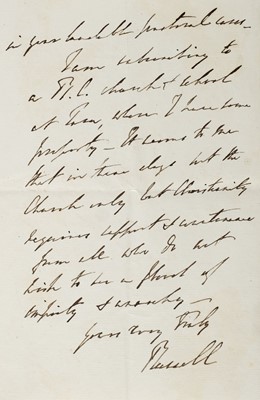 in your
pastoral care -
I am subscribing to
a R.C. church & school
at Tara, where I have some
property - It seems to me
that in these days not the
Church only but Christianity
requires support & sustenance
from all who do not
wish to see a flood of
impiety & anarchy -
Yours very truly
Russell